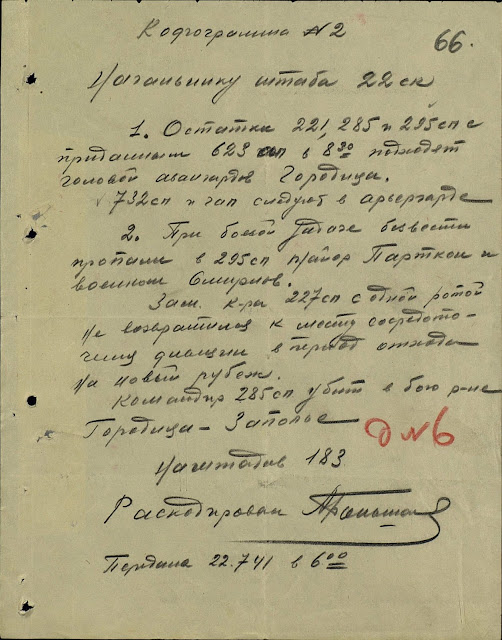 Кодограмма №2
66.
Начальнику штаба 22 ск
1. Остатки 221, 285 и 295 сп с
приданным 623 ап в 8 30 подходят
головой авангардов Городища.
732 сп и зап следуют в арьергарде
2. При боевой задаче безвести
пропали в 295 сп майор и
военком Смирнов.
Зам. к-ра 227 сп с одной ротой
не возвратился к месту сосредото-
чения дивизии в период отхода
на новый рубеж.
Командир 285 сп убит в бою р-не
Городища - Заполье
Д №6
Наштадив 183
Раскодировал
Передана 22.7 41 в 6 00